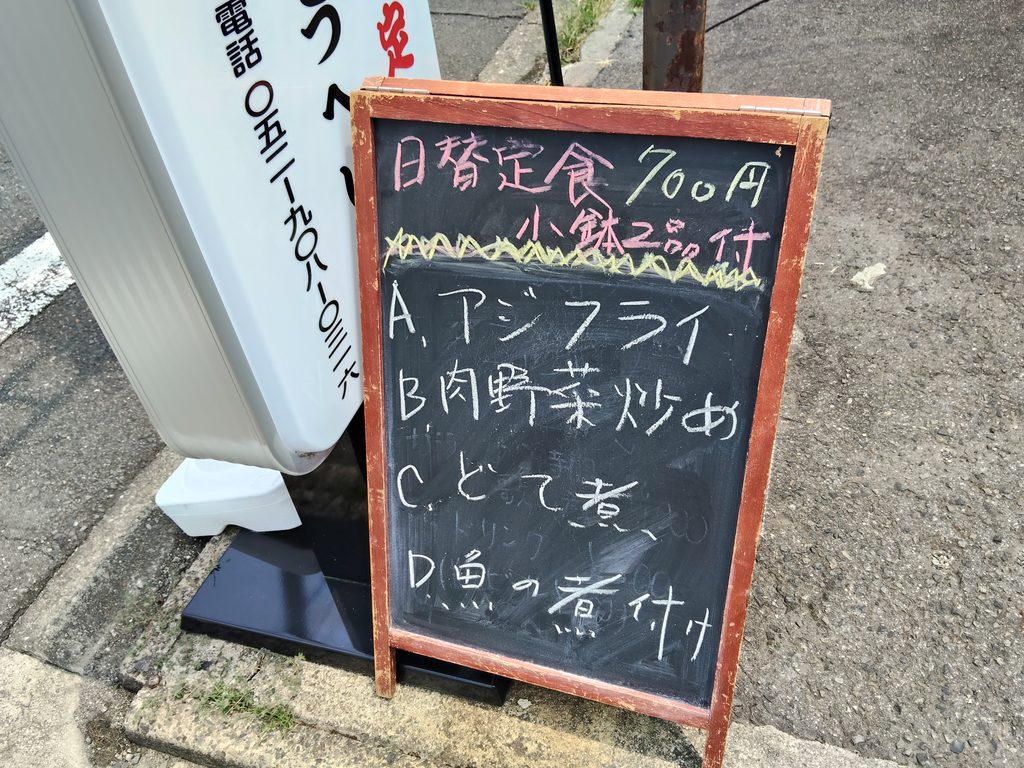 定
うへい
電話 〇五二ー九〇八ー〇三二六
日替定食 700円
小鉢2品付
A. アジフライ
B. 肉野菜炒め
C. どて煮
D. 魚の煮付け